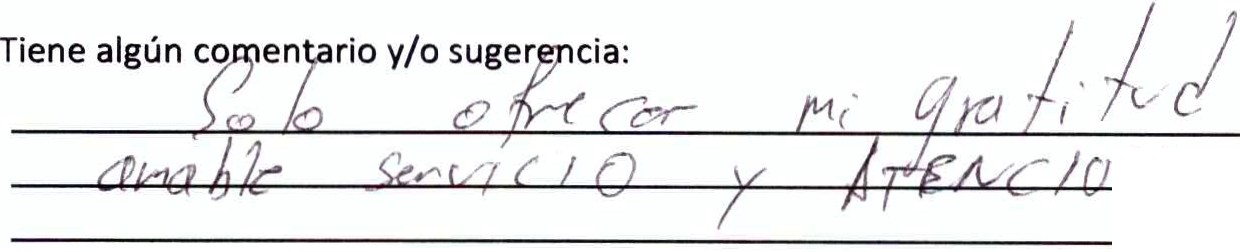 Tiene algún comentario y/o sugerencia:
Solo ofrecer mi gratitud
amable servicio y ATENCIO